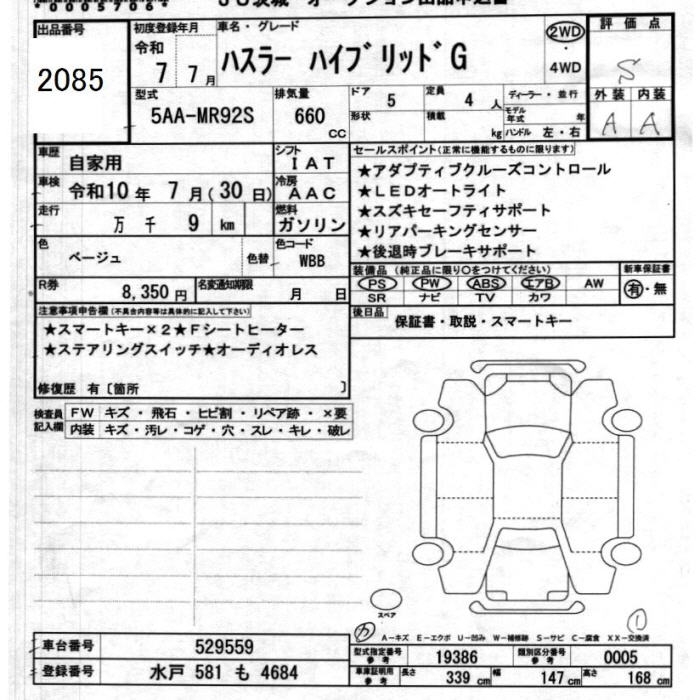 0005706
出品番号
2085
初度登録年月
令和
7 7月
車名・グレード
ハスラー ハイブリッドG
2WD
4WD
評価点
S
外装 内装
A A
型式
5AA-MR92S
排気量
660
CC
ドア
5
定員
4 人
形状
積載
kg
ディーラー・並行
モデル年式
年
ハンドル 左・右
車歴
自家用
シフト
IAT
車検
令和10年 7月(30日)
冷房
AAC
走行
万 千 9 km
燃料
ガソリン
色
ベージュ
色替
色コード
WBB
R券
8,350円
名変通知期限
月 日
セールスポイント(正常に機能するものに限ります)
★アダプティブクルーズコントロール
★LEDオートライト
★スズキセーフティサポート
★リアパーキングセンサー
★後退時ブレーキサポート
装備品 (純正品に限り○をつけてください)
PS PW ABS エアB AW
SR ナビ TV カワ
新車保証書
有・無
後日品
保証書・取説・スマートキー
注意事項申告欄(不具合内容等は具体的に記入して下さい)
★スマートキー×2★Fシートヒーター
★ステアリングスイッチ★オーディオレス
修復歴 有〔箇所 〕
検査員記入欄
FW キズ・飛石・ヒビ割・リペア跡・×要
内装 キズ・汚レ・コゲ・穴・スレ・キレ・破レ
スペア
①
カ
A−キズ E−エクボ U−凹み W−補修跡 S−サビ C−腐食 XX−交換済
車台番号
529559
登録番号
水戸 581 も 4684
型式指定番号
参考
19386
類別区分番号
参考
0005
車庫証明用
参考
長さ
339 cm
幅
147 cm
高さ
168 cm